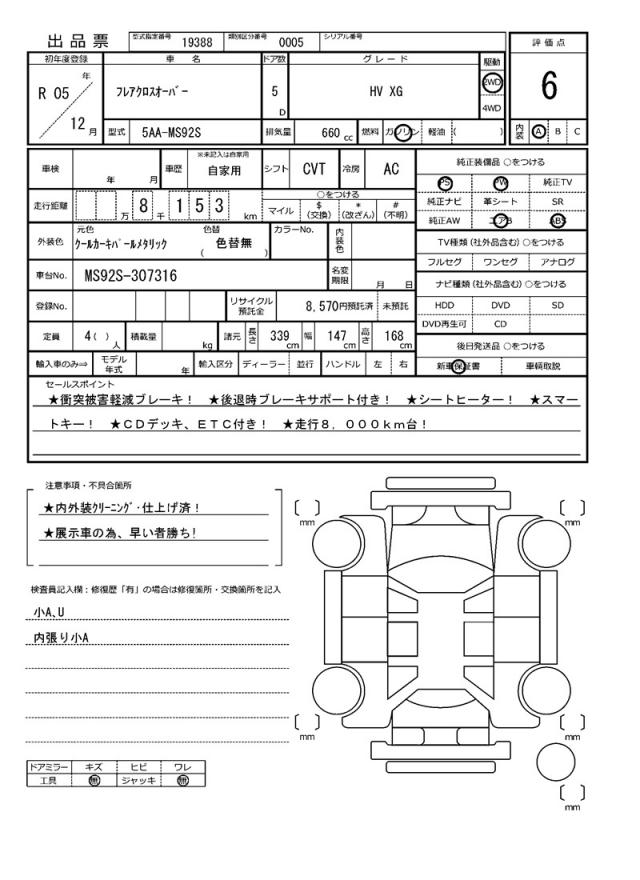 出品票
型式指定番号 19388 類別区分番号 0005 シリアル番号
評価点
6
初年度登録 車名 ドア数 グレード 駆動
R 05 年 12 月
フレアクロスオーバー
5 D
HV XG
2WD
4WD
型式 5AA-MS92S 排気量 660 cc 燃料 ガソリン 軽油 ( )
内装 A B C
車検 年 月 車歴 ※未記入は自家用 自家用 シフト CVT 冷房 AC
走行距離 万 8 千 1 5 3 km
○をつける
マイル $(交換) *(改ざん) #(不明)
外装色 元色 クールカーキパールメタリック 色替 ( 色替無 ) カラーNo. 内装色
車台No. MS92S-307316 名変期限 月 日
登録No. リサイクル預託金 8,570円預託済 未預託
定員 4( ) 人 積載量 kg 諸元 長さ 339 cm 幅 147 cm 高さ 168 cm
輸入車のみ⇒ モデル年式 年 輸入区分 ディーラー 並行 ハンドル 左 右
純正装備品 ○をつける
PS PW 純正TV
純正ナビ 革シート SR
純正AW エアB ABS
TV種類(社外品含む)○をつける
フルセグ ワンセグ アナログ
ナビ種類(社外品含む)○をつける
HDD DVD SD
DVD再生可 CD
後日発送品 ○をつける
新車保証書 車輌取説
セールスポイント
★衝突被害軽減ブレーキ! ★後退時ブレーキサポート付き! ★シートヒーター! ★スマー
トキー! ★CDデッキ、ETC付き! ★走行8,000km台!
注意事項・不具合箇所
★内外装クリーニング・仕上げ済!
★展示車の為、早い者勝ち!
検査員記入欄:修復歴「有」の場合は修復箇所・交換箇所を記入
小A、U
内張り小A
ドアミラー キズ ヒビ ワレ
工具 無 ジャッキ 無
[ ] mm
[ ] mm
[ ] mm
[ ] mm
[ ] mm